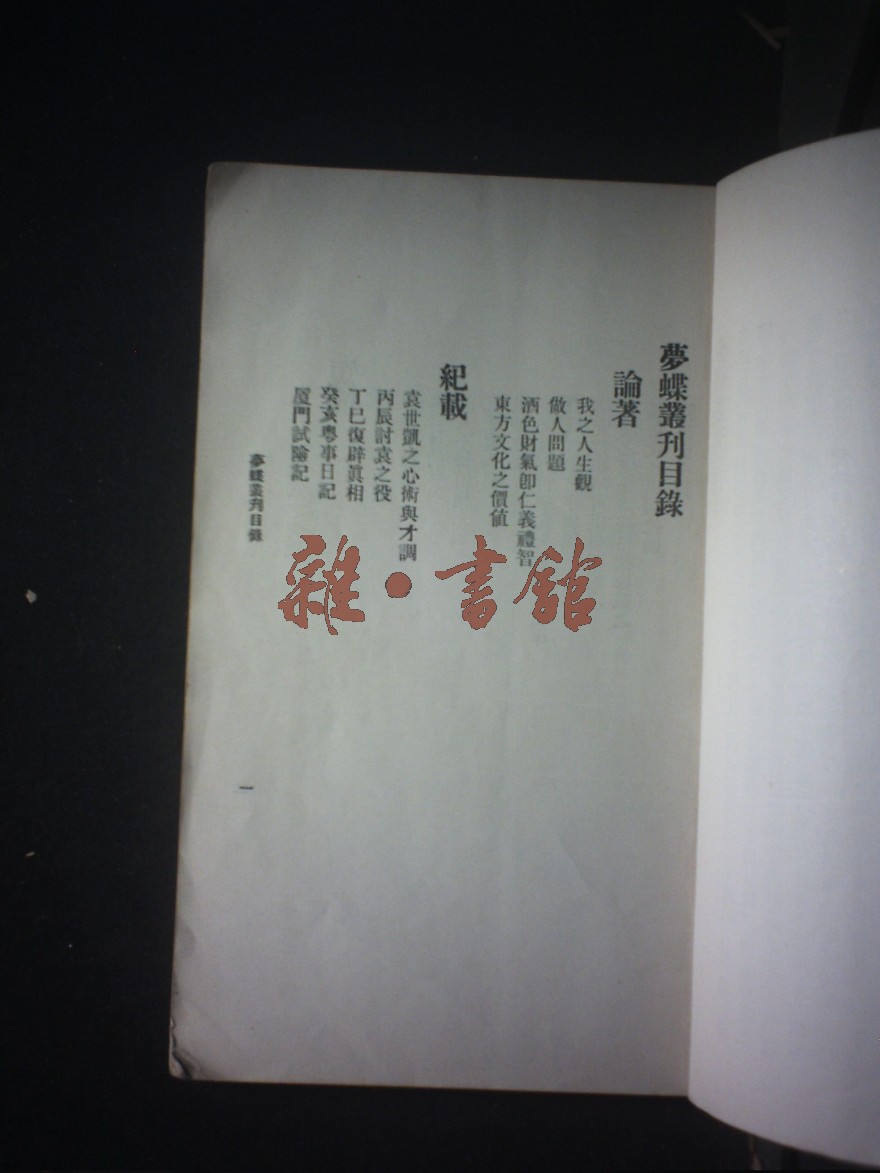 夢蝶叢刊目錄
論著
我之人生觀
做人問題
酒色財氣卽仁義禮智
東方文化之價値
紀載
袁世凱之心術與才調
丙辰討袁之役
丁巳復辟眞相
癸亥粵事日記
厦門試險記
夢蝶叢刊目錄
一
雜·書館